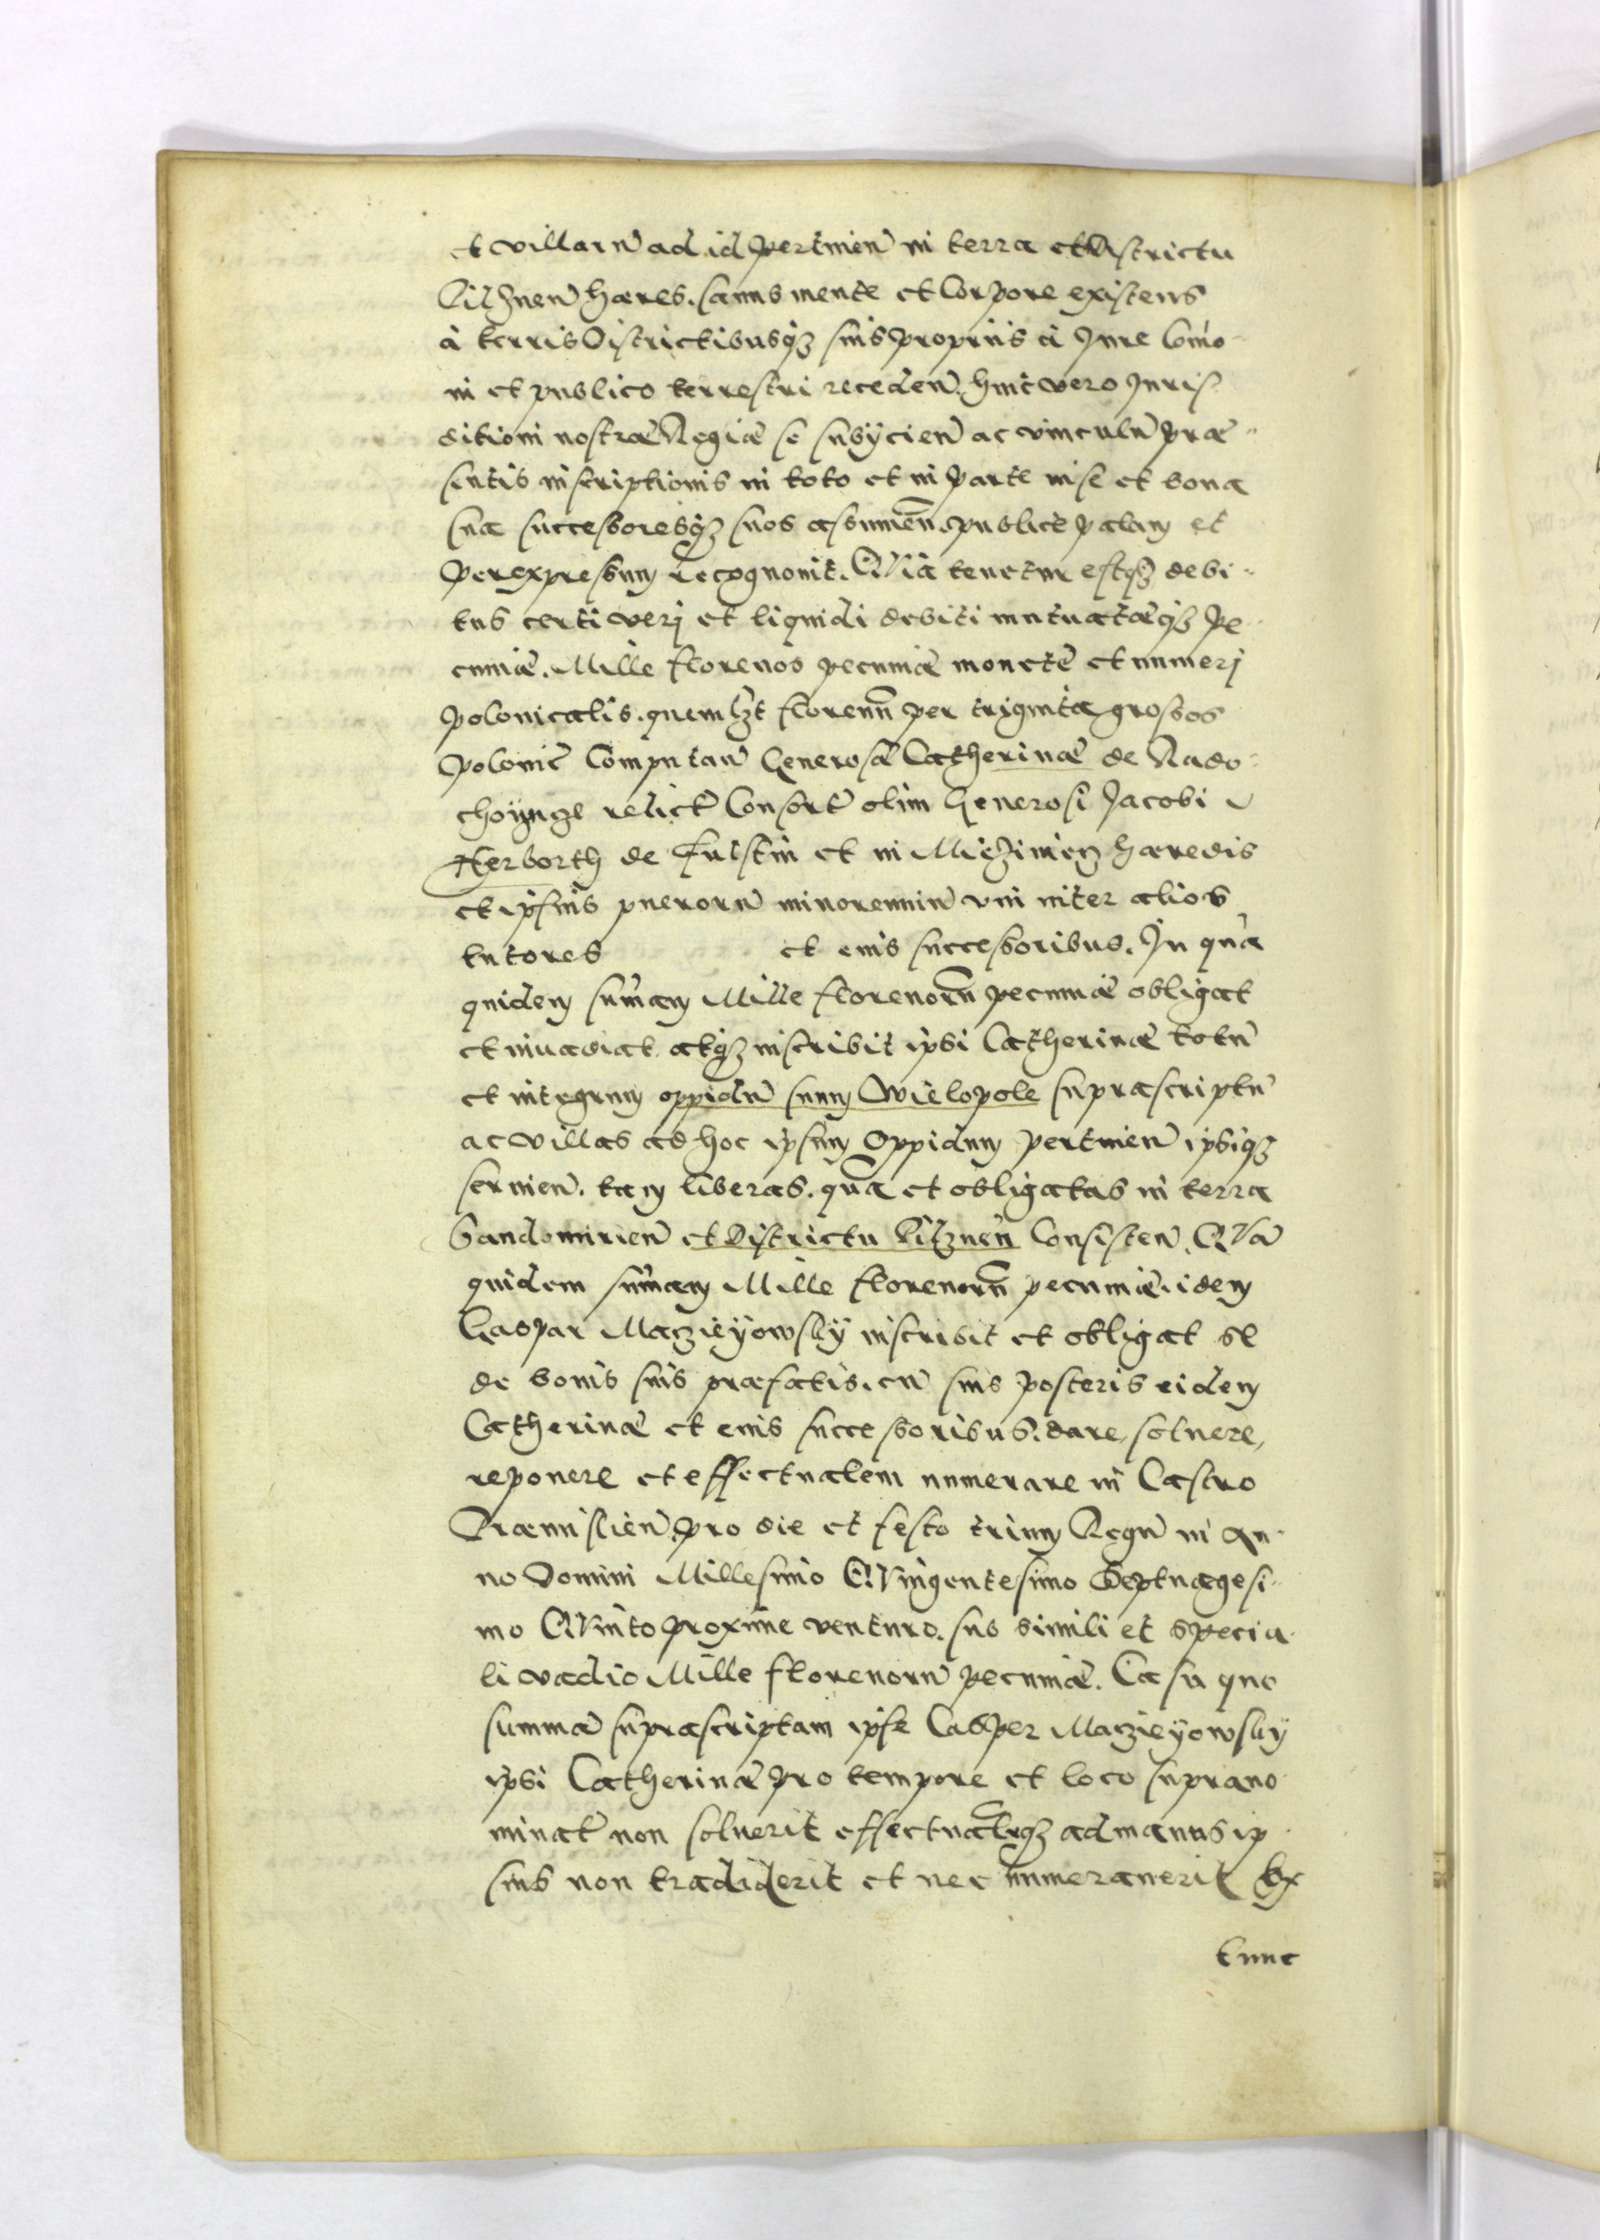 et villarũ ad id pertinen̄ in terra et Districtu
Pilznen̄ hæres. sanus mente et Corpore existens
à terris Districtibusq₃ suis proprijs à Jure Com̃u-
ni et publico terrestri recedeñ. huic vero Juris-
ditioni nostræ Regiæ se subijcieñ ac vinculũ præ-
sentis inscriptionis in toto et in parte in se et bona
sua successoresq₃ suos assumeñ. publicè palam et
per expressum recognovit. Quia tenetur estq₃ debi-
tus certi verj et liquidi debiti mutuatæq₃ pe-
cuniæ. Mille florenos pecuniæ monetæ et numerj
polonicalis. quemlꝫt florenũ per triginta grossos
polonic̃ Computañ Generosæ Catherinæ de Rado-
choyñcze relictæ Consort̃ olim Generosi Jacobi
Herborth de Fulstin et in Miezinięcz hæredis
et ipsius puerorũ minorenniũ vni inter alios
tutores et eius successoribus. In qua
quidem sum̃am Mille florenorũ pecuniæ obligat
et inuadiat atq₃ inscribit ipsi Catherinæ totũ
et integrum oppidũ suum Wielopole supra scriptũ
ac villas ad hoc ipsum Oppidum pertineñ ipsiq₃
seruieñ. tam liberas. quã et obligatas in terra
Sandomirieñ et Districtu Pilzneñ Consisteñ. Quã
quidem sum̃am Mille florenorũ pecuniæ. idem
Gaspar Maczieyowsky inscribit et obligat se
de bonis suis præfatis. cũ suis posteris eidem
Catherinæ et eius successoribus. dare, soluere,
reponere et effectualem numerare in Castro
Præmislień. pro die et festo trium Regũ in An-
no Domini Millesimo Quingentesimo Septuagesi-
mo Quinto proxime venturo. sub simili et specia-
li vadio Mille florenorũ pecuniæ. Casu quo
summã supra scriptam ipse Casper Maczieyowsky
ipsi Catherinæ pro tempore et loco suprano-
minat̃ non soluerit effectualiterq₃ ad manus ip-
sius non tradiderit et nec numerauerit Ex
tunc